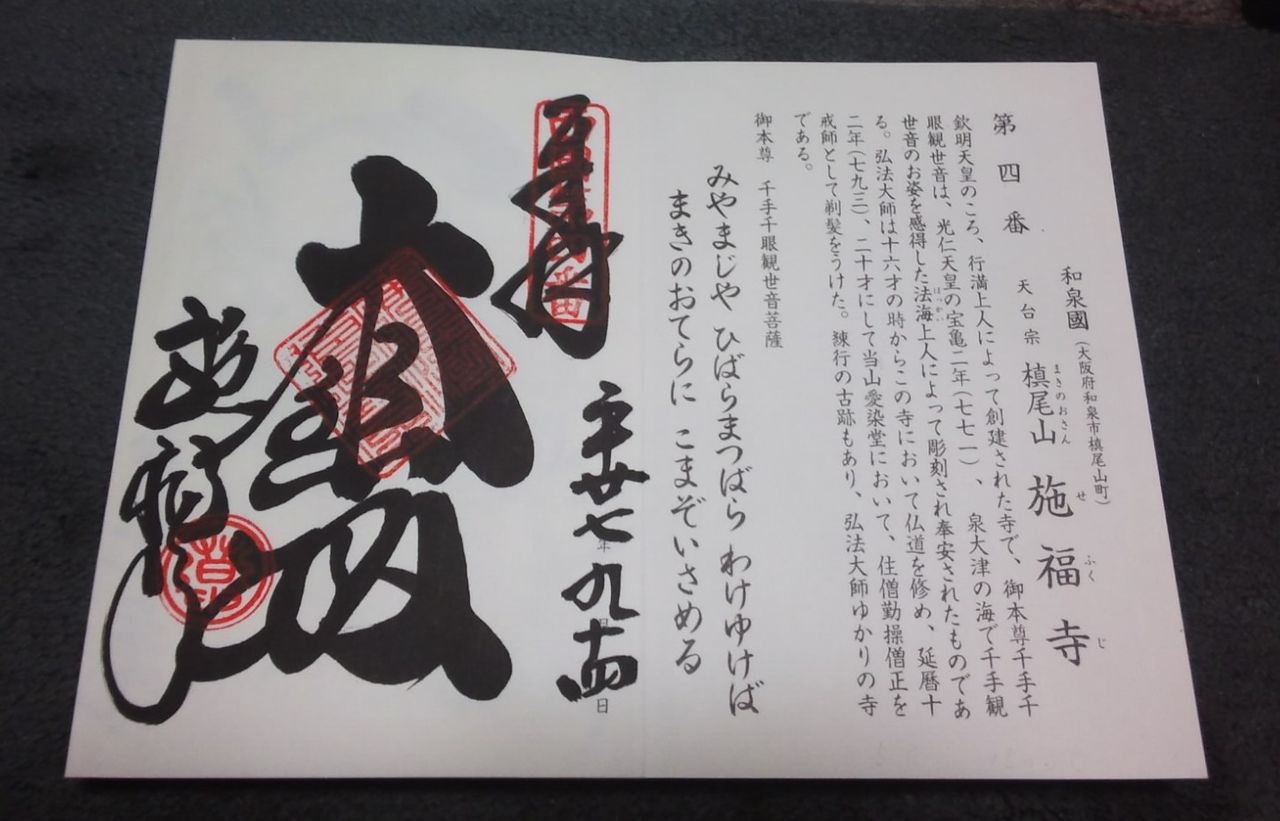 第四番
和泉國(大阪府和泉市槙尾山町)
天台宗 槙尾山 施福寺
まきのおさん せ ふく じ
欽明天皇のころ、行満上人によって創建された寺で、御本尊千手千
眼観世音は、光仁天皇の宝亀二年(七七一)、泉大津の海で千手観
世音のお姿を感得した法海上人によって彫刻され奉安されたものであ
ほっかい
る。弘法大師は十六才の時からこの寺において仏道を修め、延暦十
二年(七九三)、二十才にして当山愛染堂において、住僧勤操僧正を
戒師として剃髪をうけた。練行の古跡もあり、弘法大師ゆかりの寺
である。
御本尊 千手千眼観世音菩薩
みやまじや ひばらまつばら わけゆけば
まきのおてらに こまぞいさめる
奉拝
平廿七年九月十四日
大悲殿
施福寺